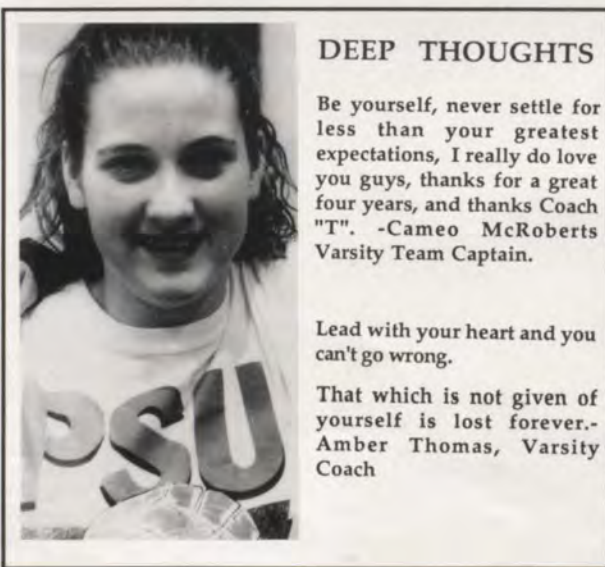 DEEP THOUGHTS
Be yourself, never settle for
less than your greatest
expectations, I really do love
you guys, thanks for a great
four years, and thanks Coach
"T". -Cameo McRoberts
Varsity Team Captain.
Lead with your heart and you
can't go wrong.
That which is not given of
yourself is lost forever.-
Amber Thomas, Varsity
Coach
PSU